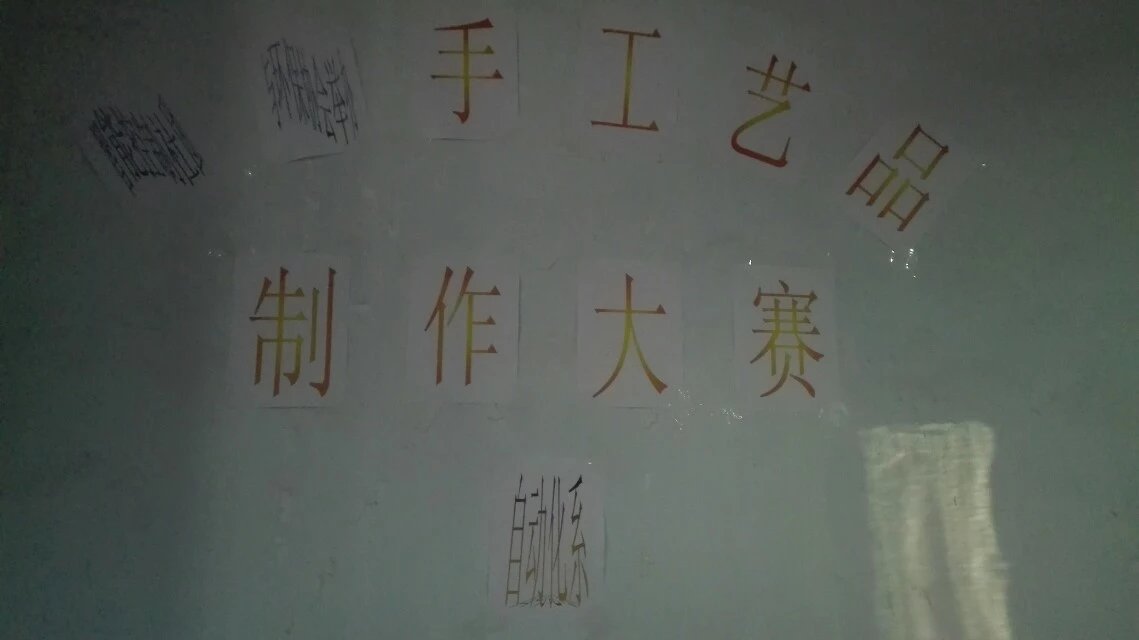 手工艺品
制作大赛
自动化系